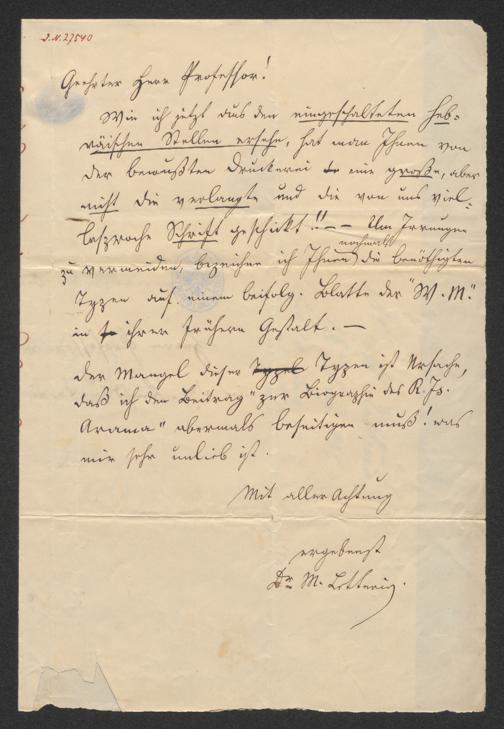 J.N. 27540
Geehrter Herr Professor!
Wie ich jetzt aus den eingeschalteten heb-
räischen Stellen ersehe, hat man Ihnen von
der bewußten Druckerei eine große, aber
nicht die verlangte und die von uns viel-
besproche Schrift geschickt!! — Um Irrungen
zu vermeiden, bezeichne ich Ihnen nochmals die benöthigten
Typen auf einem beifolg. Blatte der "W. M."
in ihrer frühern Gestalt. —
Der Mangel dieser Typen ist Ursache,
daß ich den Beitrag "zur Biographie des R. Is.
Arama" abermals beseitigen muß! was
mir sehr unlieb ist.
Mit aller Achtung
ergebenst
Dr. M. Letteris.